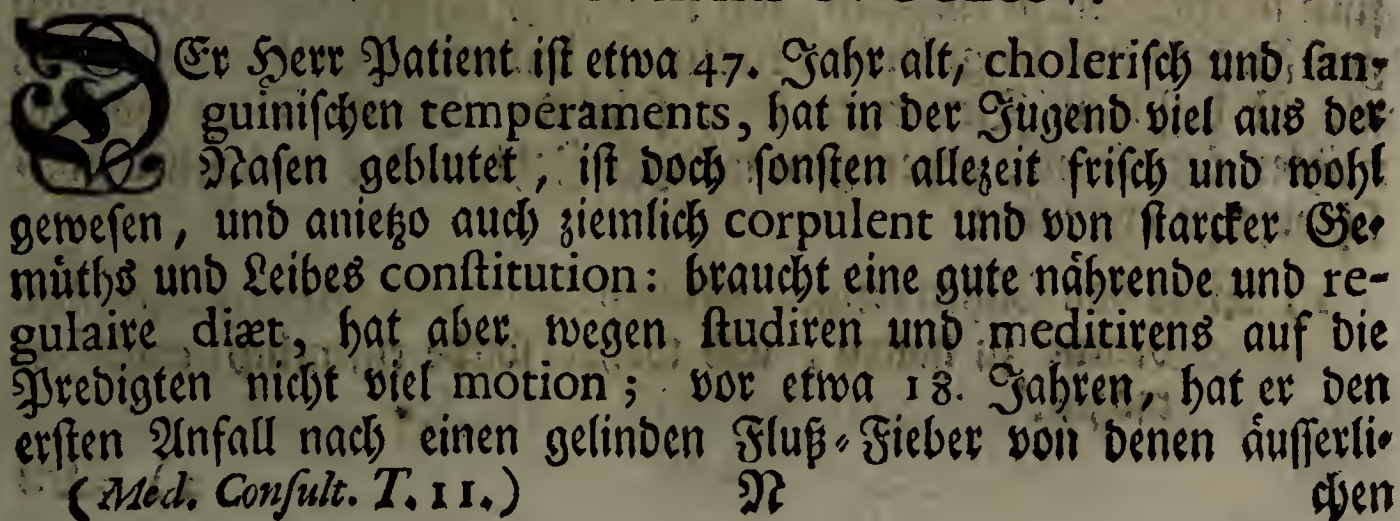 DEr Herr Patient ist etwa 47. Jahr alt, cholerisch und san-
guinischen temperaments, hat in der Jugend viel aus der
Nasen geblutet, ist doch sonsten allezeit frisch und wohl
gewesen, und anietzo auch ziemlich corpulent und von starcker Ge-
müths und Leibes constitution: braucht eine gute nährende und re-
gulaire diæt, hat aber wegen studiren und meditirens auf die
Predigten nicht viel motion; vor etwa 18. Jahren, hat er den
ersten Anfall nach einen gelinden Fluß-Fieber von denen äusserli-
(Med. Consult. T. II.) N chen